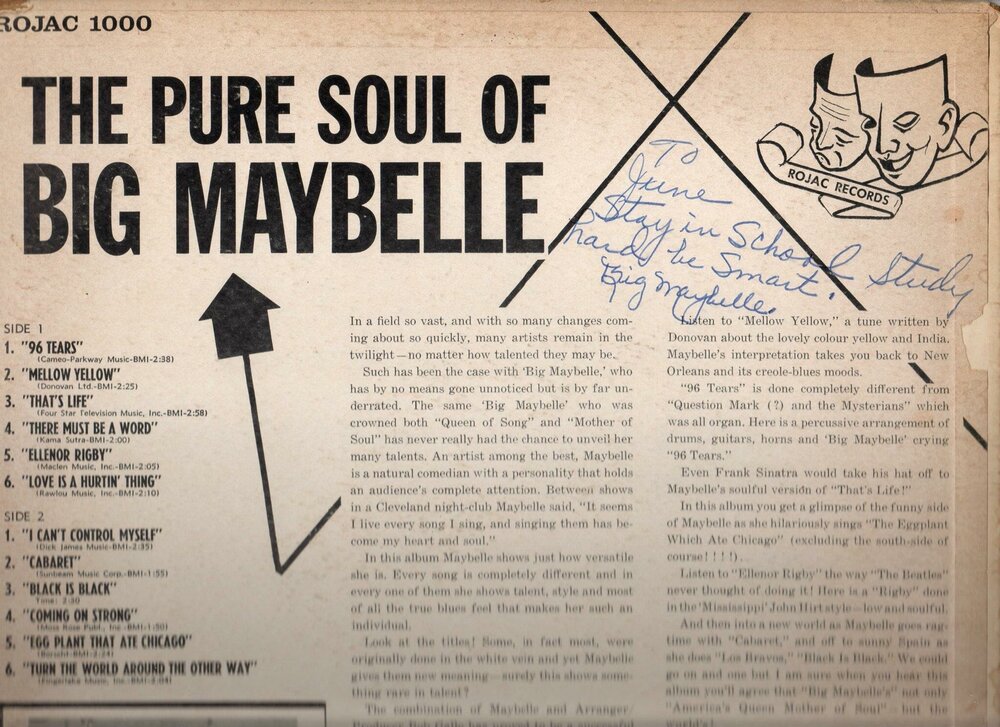 ROJAC 1000
THE PURE SOUL OF
BIG MAYBELLE
ROJAC RECORDS
To
June
Stay in School Study
hard, be Smart.
Big Maybelle.
SIDE 1
1. "96 TEARS"
(Cameo-Parkway Music-BMI-2:38)
2. "MELLOW YELLOW"
(Donovan Ltd.-BMI-2:25)
3. "THAT'S LIFE"
(Four Star Television Music, Inc.-BMI-2:58)
4. "THERE MUST BE A WORD"
(Kama Sutra-BMI-2:00)
5. "ELLENOR RIGBY"
(Maclen Music, Inc.-BMI-2:05)
6. "LOVE IS A HURTIN' THING"
(Rawlou Music, Inc.-BMI-2:10)
SIDE 2
1. "I CAN'T CONTROL MYSELF"
(Dick James Music-BMI-2:35)
2. "CABARET"
(Sunbeam Music Corp.-BMI-1:55)
3. "BLACK IS BLACK"
Time: 2:30
4. "COMING ON STRONG"
(Moss Rose Publ., Inc.-BMI-1:50)
5. "EGG PLANT THAT ATE CHICAGO"
6. "TURN THE WORLD AROUND THE OTHER WAY"
In a field so vast, and with so many changes com-
ing about so quickly, many artists remain in the
twilight—no matter how talented they may be.
Such has been the case with 'Big Maybelle,' who
has by no means gone unnoticed but is by far un-
derrated. The same 'Big Maybelle' who was
crowned both "Queen of Song" and "Mother of
Soul" has never really had the chance to unveil her
many talents. An artist among the best, Maybelle
is a natural comedian with a personality that holds
an audience's complete attention. Between shows
in a Cleveland night-club Maybelle said, "It seems
I live every song I sing, and singing them has be-
come my heart and soul."
In this album Maybelle shows just how versatile
she is. Every song is completely different and in
every one of them she shows talent, style and most
of all the true blues feel that makes her such an
individual.
Look at the titles! Some, in fact most, were
originally done in the white vein and yet Maybelle
gives them new meaning—surely this shows some-
thing rare in talent?
The combination of Maybelle and Arranger/
Listen to "Mellow Yellow," a tune written by
Donovan about the lovely colour yellow and India.
Maybelle's interpretation takes you back to New
Orleans and its creole-blues moods.
"96 Tears" is done completely different from
"Question Mark (?) and the Mysterians" which
was all organ. Here is a percussive arrangement of
drums, guitars, horns and 'Big Maybelle' crying
"96 Tears."
Even Frank Sinatra would take his hat off to
Maybelle's soulful version of "That's Life!"
In this album you get a glimpse of the funny side
of Maybelle as she hilariously sings "The Eggplant
Which Ate Chicago" (excluding the south-side of
course! ! ! !).
Listen to "Ellenor Rigby" the way "The Beatles"
never thought of doing it! Here is a "Rigby" done
in the 'Mississippi' John Hirt style—low and soulful.
And then into a new world as Maybelle goes rag-
time with "Cabaret," and off to sunny Spain as
she does "Los Bravos," "Black Is Black." We could
go on and one but I am sure when you hear this
album you'll agree that "Big Maybelle's" not only
"America's Queen Mother of Soul"—but the
world's!